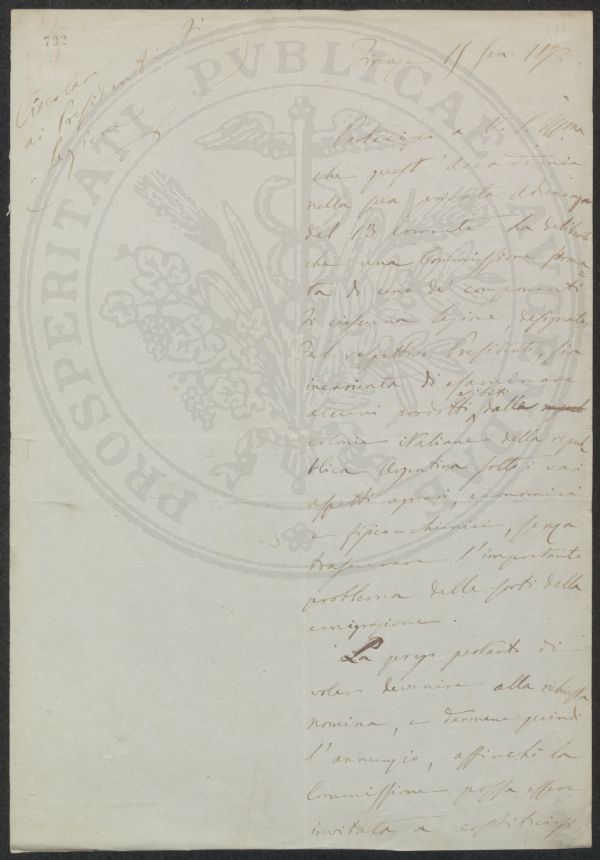 732
Circolare
ai Presidenti di
Sezione
Firenze 15 Gen. 1873
Partecipo a V. S. Illma
che quest'Accademia
nella sua privata Adunanza
del 13 Corrente ha deliberato
che una Commissione forma=
ta di uno de' componenti
di ciascuna Sezione, designato
dal respettivo Presidente, sia
incaricata di esaminare
alcuni prodotti dalle
colonie italiane della repub
blica Argentina sotto i vari
aspetti agrari, economici
e fisico-chimici, senza
trascurare l'importante
problema delle sorti della
emigrazione.
La prego pertanto di
voler devenire alla richiesta
nomina, e darmene quindi
l'annunzio, affinchè la
Commissione possa essere
invitata a costituirsi
PROSPERITATI PVBLICAE